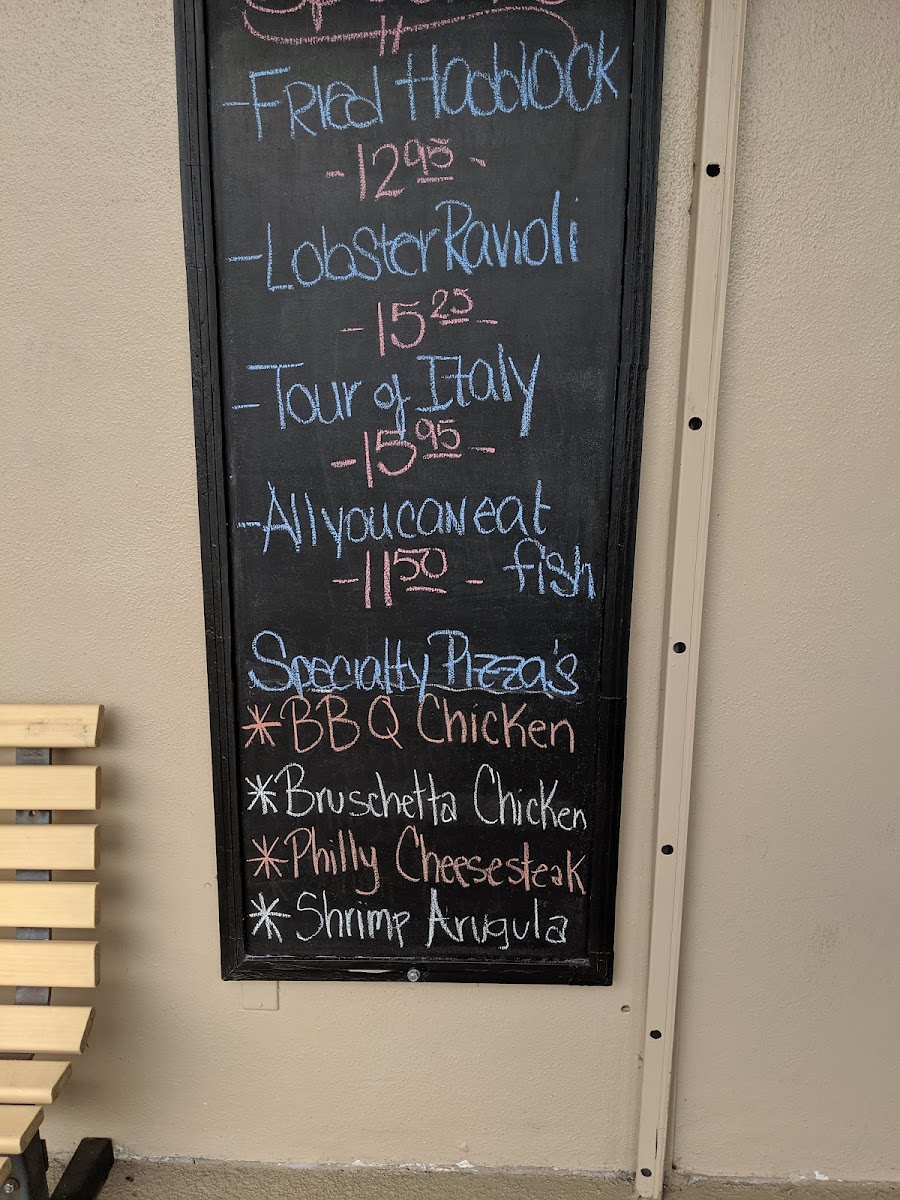 -Fried Haddock
-12.95-
-Lobster Ravioli
-15.25-
-Tour of Italy
-15.95-
-All you can eat
fish
-11.50-
Specialty Pizza's
*BBQ Chicken
*Bruschetta Chicken
*Philly Cheesesteak
*Shrimp Arugula